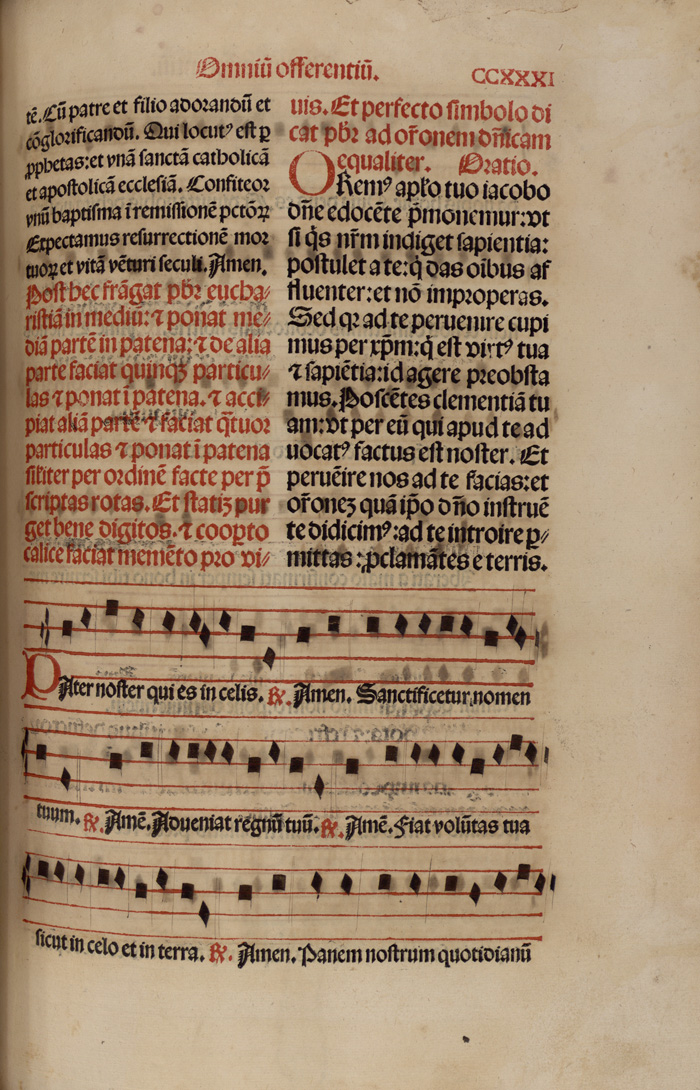 Omniū offerentiū.
CCXXXI
tē. Cū patre et filio adorandū et
cōglorificandū. Qui locutꝰ est ꝑ
ꝓphetas: et vnā sanctā catholicā
et apostolicā ecclesiā. Confiteor
vnū baptisma ī remissionē pctōꝝ
Expectamus resurrectionē mor
tuoꝝ et vitā vēturi seculi. Amen.
Post hec frāgat pb̄r eucha⸗
ristiā in mediū: ⁊ ponat me⸗
diā partē in patena: ⁊ de alia
parte faciat quinqꝫ particu⸗
las ⁊ ponat ī patena. ⁊ acci⸗
piat aliā partē ⁊ faciat q̄tuor
particulas ⁊ ponat ī patena
sīliter per ordinē facte per p̄
scriptas rotas. Et statiꝫ pur
get bene digitos. ⁊ coopto
calice faciat memēto pro vi⸗
uis. Et perfecto simbolo di
cat pb̄r ad or̄onem dn̄icam
equaliter. Oratio.
ORemꝰ apl̄o tuo iacobo
dn̄e edocēte p̄monemur: vt
si q̇s nr̄m indiget sapientia:
postulet a te: q̇ das oībus af
fluenter: et nō improperas.
Sed qꝛ ad te peruenire cupi
mus per xp̄m: q̇ est virtꝰ tua
⁊ sapiētia: id agere preobsta
mus. Poscētes clementiā tu
am: vt per eū qui apud te ad
uocatꝰ factus est noster. Et
peruēire nos ad te facias: et
or̄oneꝫ quā ip̄o dn̄o instruē
te didicimꝰ: ad te introire ꝑ⸗
mittas: ꝓclamātes e terris.
PAter noster qui es in celis. ℟. Amen. Sanctificetur nomen
tuum. ℟. Amē. Adueniat regnū tuū. ℟. Amē. Fiat volūtas tua
sicut in celo et in terra. ℟. Amen. Panem nostrum quotidianū